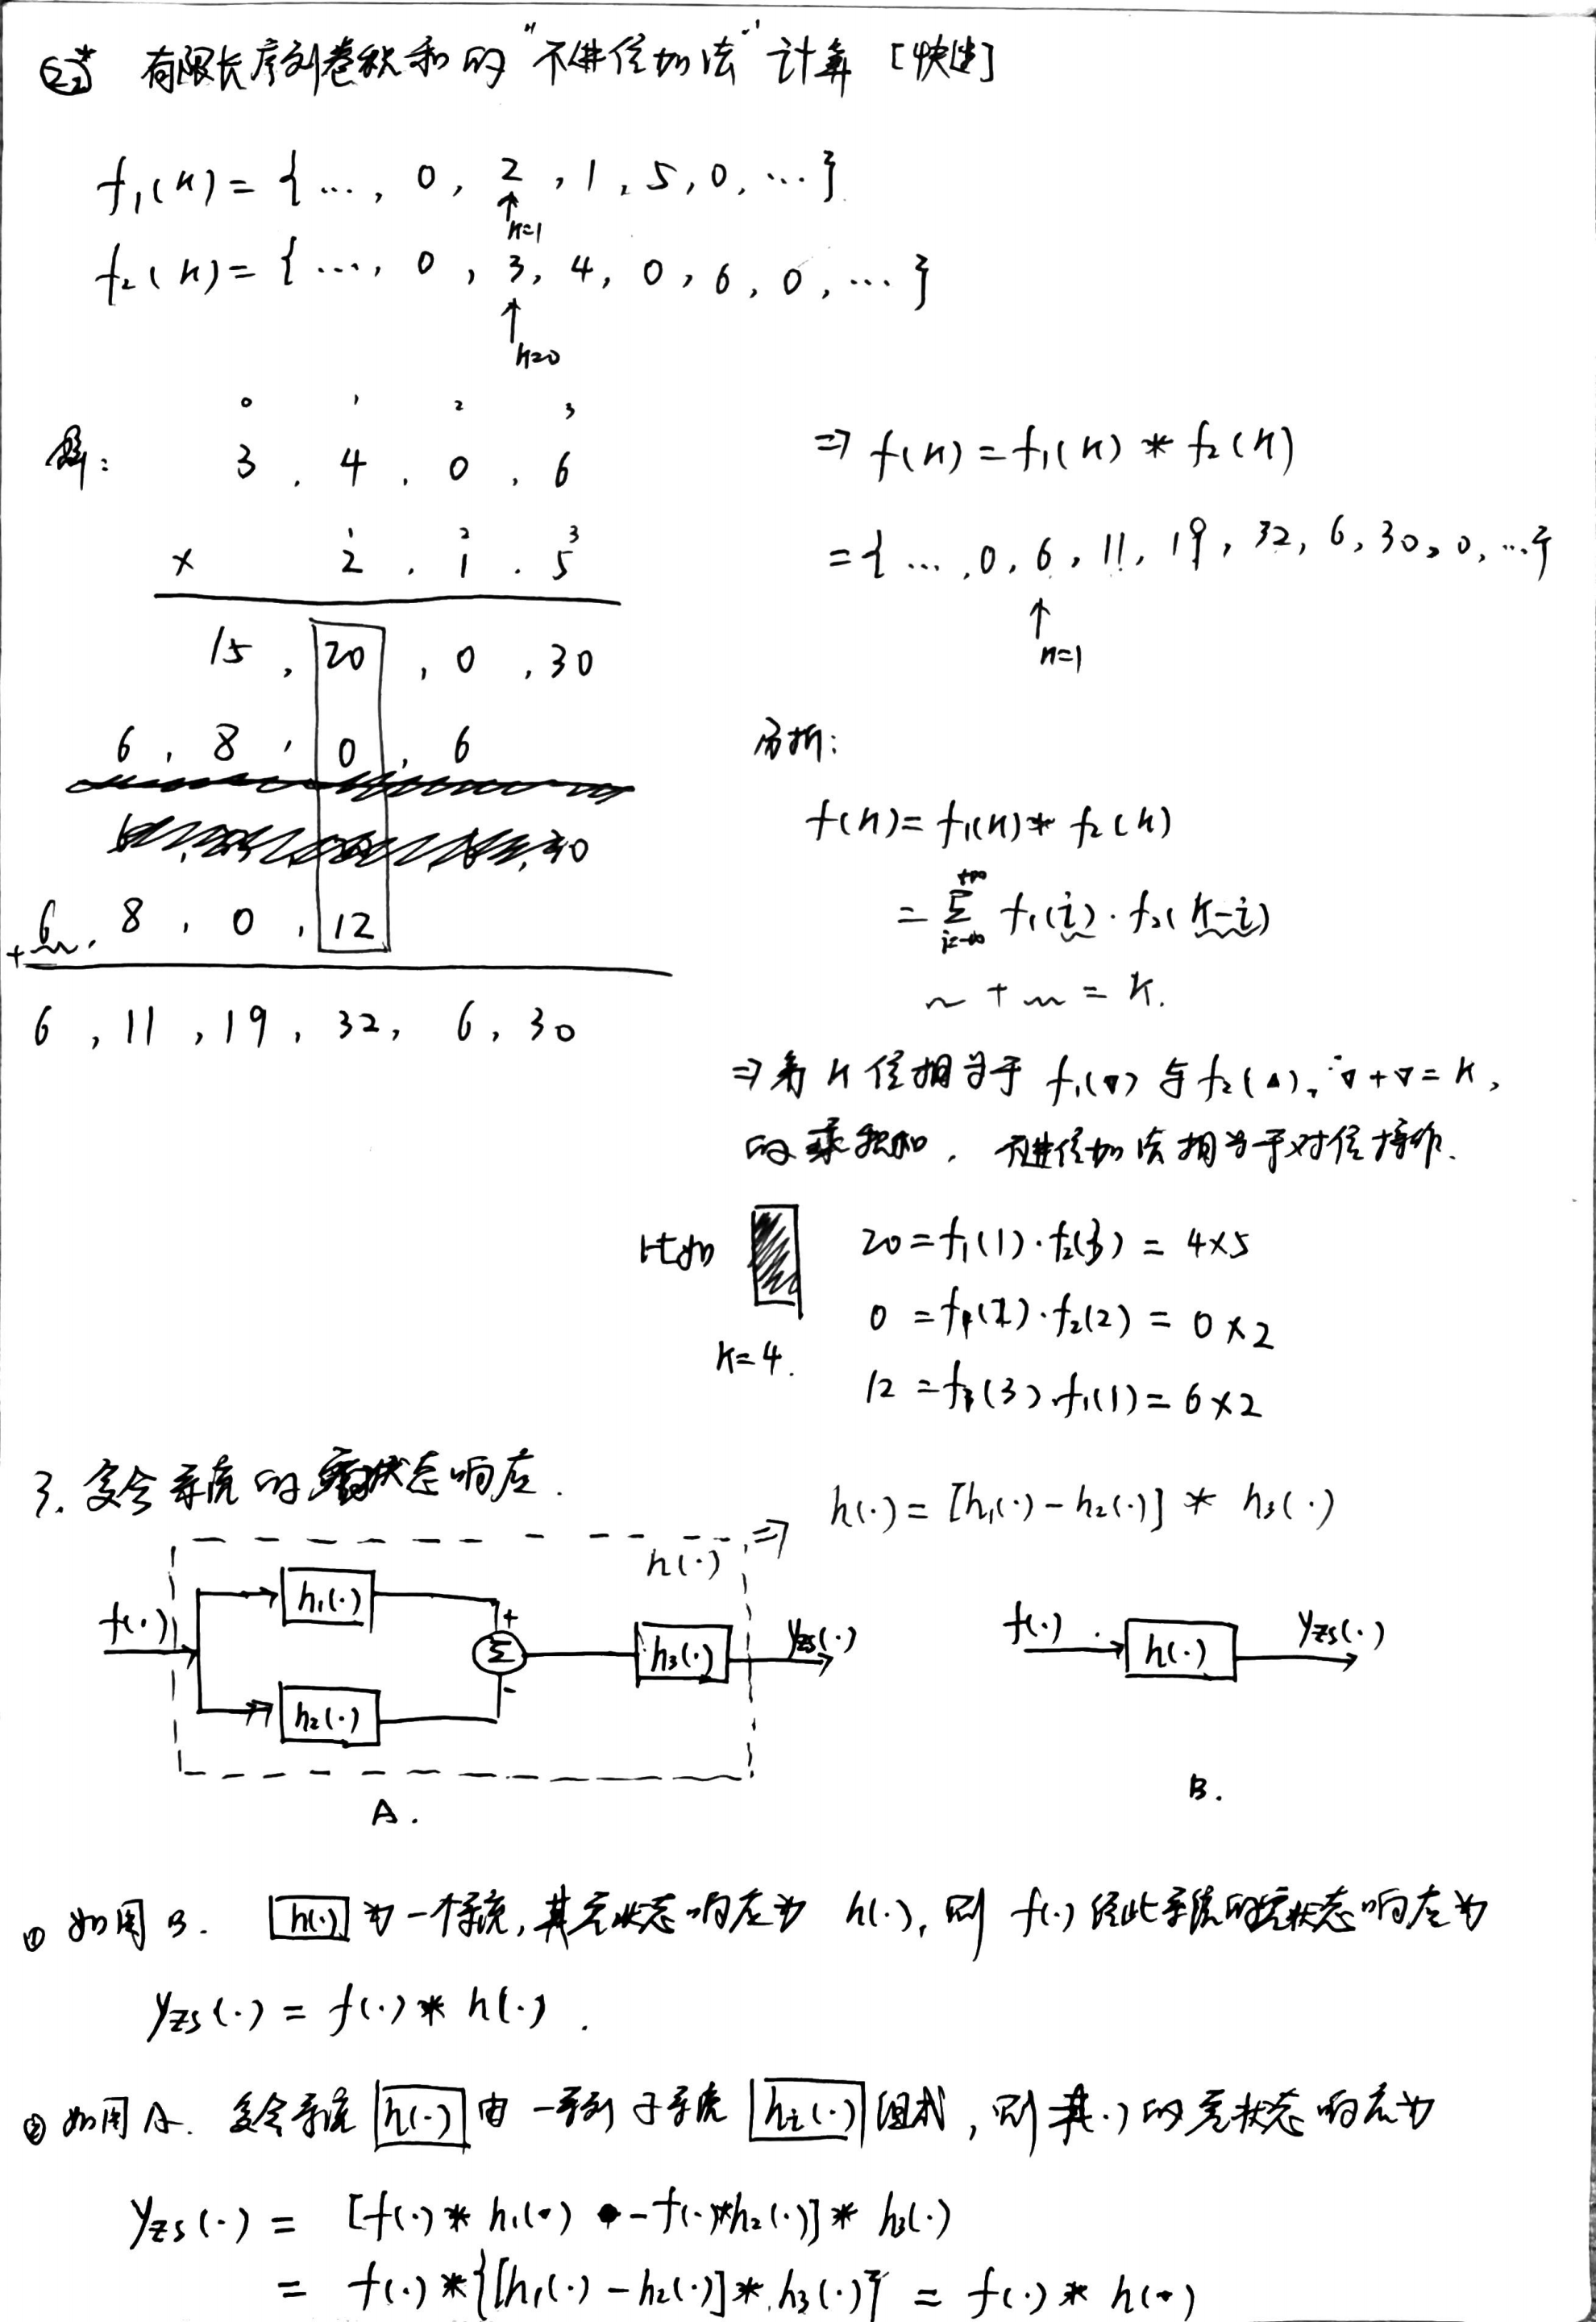 有限长序列卷积和的"不进位加法"计算 [快速]
f₁(k) = { …, 0, 2, 1, 5, 0, … }
↑ k=1
f₂(k) = { …, 0, 3, 4, 0, 6, 0, … }
↑ k=0
0 1 2 3
解: 3 , 4 , 0 , 6
1 2 3
× 2 , 1 , 5
15 , 20 , 0 , 30
6 , 8 , 0 , 6
+ 6 , 8 , 0 , 12
6 , 11 , 19 , 32 , 6 , 30
⇒ f(k) = f₁(k) * f₂(k)
= { … , 0, 6, 11, 19, 32, 6, 30, 0, … }
↑ k=1
分析:
f(k) = f₁(k) * f₂(k)
= Σ_{i=-∞}^{+∞} f₁(i) · f₂(k-i)
~ + ~ = k.
⇒ 第 k 位相当于 f₁(▽) 与 f₂(△), ▽+▽=k,
的乘积和, 不进位加法相当于对位操作.
比如
k=4.
20 = f₁(1) · f₂(3) = 4×5
0 = f₁(2) · f₂(2) = 0×2
12 = f₁(3) · f₁(1) = 6×2
3. 复合系统的零状态响应.
⇒ h(·) = [h₁(·) - h₂(·)] * h₃(·)
h(·)
f(·) h₁(·) + Σ - h₃(·) yzs(·)
h₂(·)
A.
f(·) h(·) yzs(·)
B.
① 如图 B. h(·) 为一个系统, 其零状态响应为 h(·), 则 f(·) 经此系统的零状态响应为
yzs(·) = f(·) * h(·) .
② 如图 A. 复合系统 h(·) 由 一系列 子系统 hᵢ(·) 组成, 则其(·)的零状态响应为
yzs(·) = [f(·) * h₁(·) - f(·) * h₂(·)] * h₃(·)
= f(·) * {[h₁(·) - h₂(·)] * h₃(·)} = f(·) * h(·)